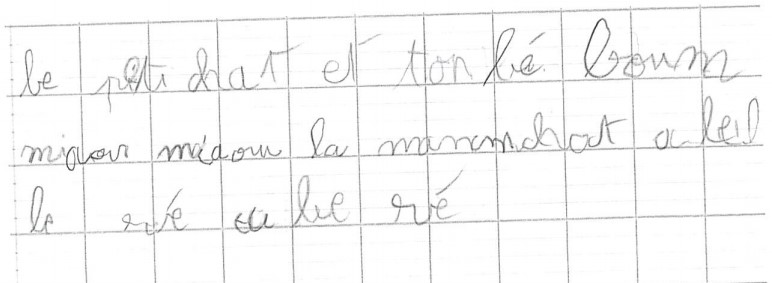 le petit chat et ton bé boum
miaou miaou la maman chat a leil
le vé a le vé